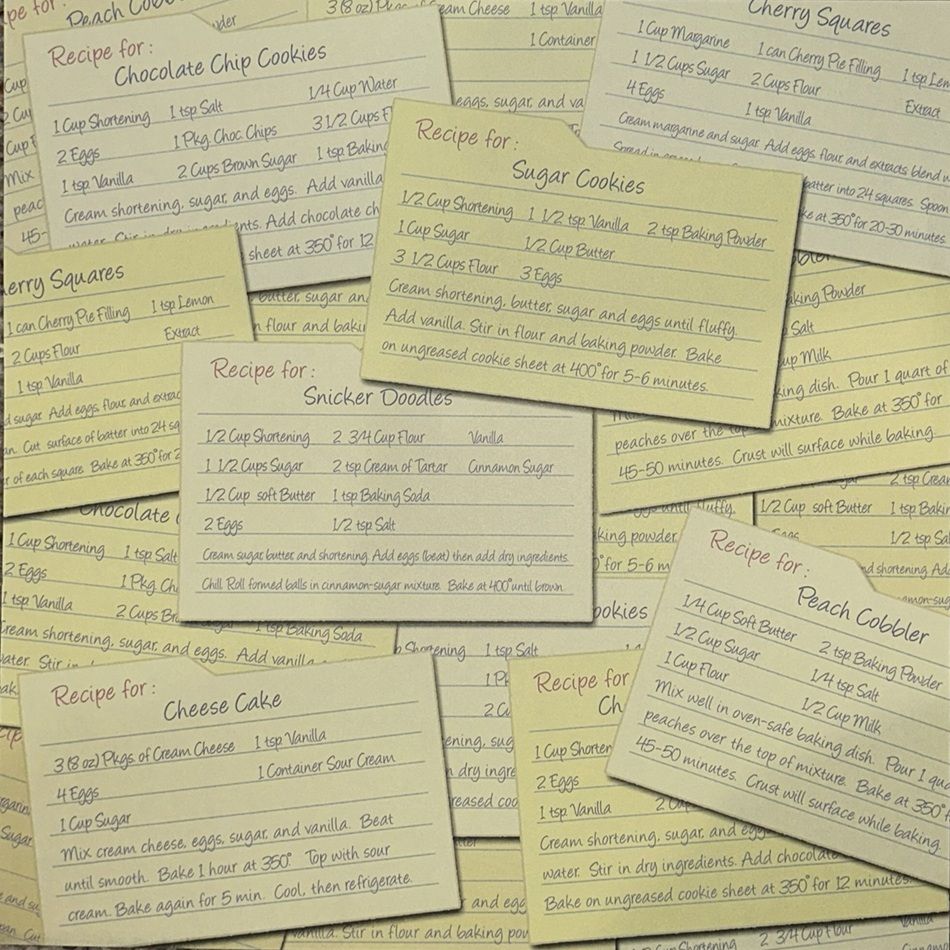 Recipe for:
Chocolate Chip Cookies
1 Cup Shortening 1 tsp Salt 1/4 Cup Water
2 Eggs 1 Pkg Choc Chips 3 1/2 Cups F
1 tsp Vanilla 2 Cups Brown Sugar 1 tsp Baking
Cream shortening, sugar, and eggs. Add vanilla
water. Stir in dry ingredients. Add chocolate ch
sheet at 350° for 12
Peach Cobb
3 (8 oz) Pkgs of Cream Cheese 1 tsp Vanilla
1 Container
eggs, sugar, and va
Cherry Squares
1 Cup Margarine 1 can Cherry Pie Filling 1 tsp Lem
1 1/2 Cups Sugar 2 Cups Flour Extract
4 Eggs 1 tsp Vanilla
Cream margarine and sugar. Add eggs, flour, and extracts blend w
Spread in
batter into 24 squares. Spoon
ke at 350° for 20-30 minutes.
Recipe for:
Sugar Cookies
1/2 Cup Shortening 1 1/2 tsp Vanilla 2 tsp Baking Powder
1 Cup Sugar 1/2 Cup Butter
3 1/2 Cups Flour 3 Eggs
Cream shortening, butter, sugar and eggs until fluffy.
Add vanilla. Stir in flour and baking powder. Bake
on ungreased cookie sheet at 400° for 5-6 minutes.
erry Squares
1 can Cherry Pie Filling 1 tsp Lemon
2 Cups Flour Extract
1 tsp Vanilla
d sugar. Add eggs, flour, and extrac
an. Cut surface of batter into 24 sq
r of each square. Bake at 350° for 2
butter, sugar an
n flour and baki
aking Powder
Salt
up Milk
king dish. Pour 1 quart of
peaches over the top mixture. Bake at 350° for
45-50 minutes. Crust will surface while baking.
Recipe for:
Snicker Doodles
1/2 Cup Shortening 2 3/4 Cup Flour Vanilla
1 1/2 Cups Sugar 2 tsp Cream of Tartar Cinnamon Sugar
1/2 Cup soft Butter 1 tsp Baking Soda
2 Eggs 1/2 tsp Salt
Cream sugar, butter and shortening. Add eggs (beat) then add dry ingredients.
Chill. Roll formed balls in cinnamon-sugar mixture. Bake at 400° until brown.
2 tsp Crea
1/2 Cup soft Butter 1 tsp Bakin
1/2 tsp Sal
nd shortening. Add
amon-sug
eggs until fluffy.
king powder
° for 5-6 m
Chocolate C
1 Cup Shortening 1 tsp Salt
2 Eggs 1 Pkg Ch
1 tsp Vanilla 2 Cups Br
1 tsp Baking Soda
Cream shortening, sugar, and eggs. Add vanilla
water. Stir in
ookies
Shortening 1 tsp Salt
1 Pk
2 Cu
ening, sug
n dry ingre
reased coo
Recipe for:
Peach Cobbler
1/4 Cup Soft Butter 2 tsp Baking Powder
1/2 Cup Sugar 1/4 tsp Salt
1 Cup Flour 1/2 Cup Milk
Mix well in oven-safe baking dish. Pour 1 qua
peaches over the top of mixture. Bake at 350° f
45-50 minutes. Crust will surface while baking.
Recipe for:
Cheese Cake
3 (8 oz) Pkgs of Cream Cheese 1 tsp Vanilla
4 Eggs 1 Container Sour Cream
1 Cup Sugar
Mix cream cheese, eggs, sugar, and vanilla. Beat
until smooth. Bake 1 hour at 350° Top with sour
cream. Bake again for 5 min. Cool, then refrigerate.
Recipe for
Ch
1 Cup Shorten
2 Eggs
1 tsp Vanilla 2 Cups
Cream shortening, sugar, and eggs
water. Stir in dry ingredients. Add chocolate
Bake on ungreased cookie sheet at 350° for 12 minutes.
and egg
vanilla. Stir in flour and baking pow
2 3/4 Cup Flour Vanilla